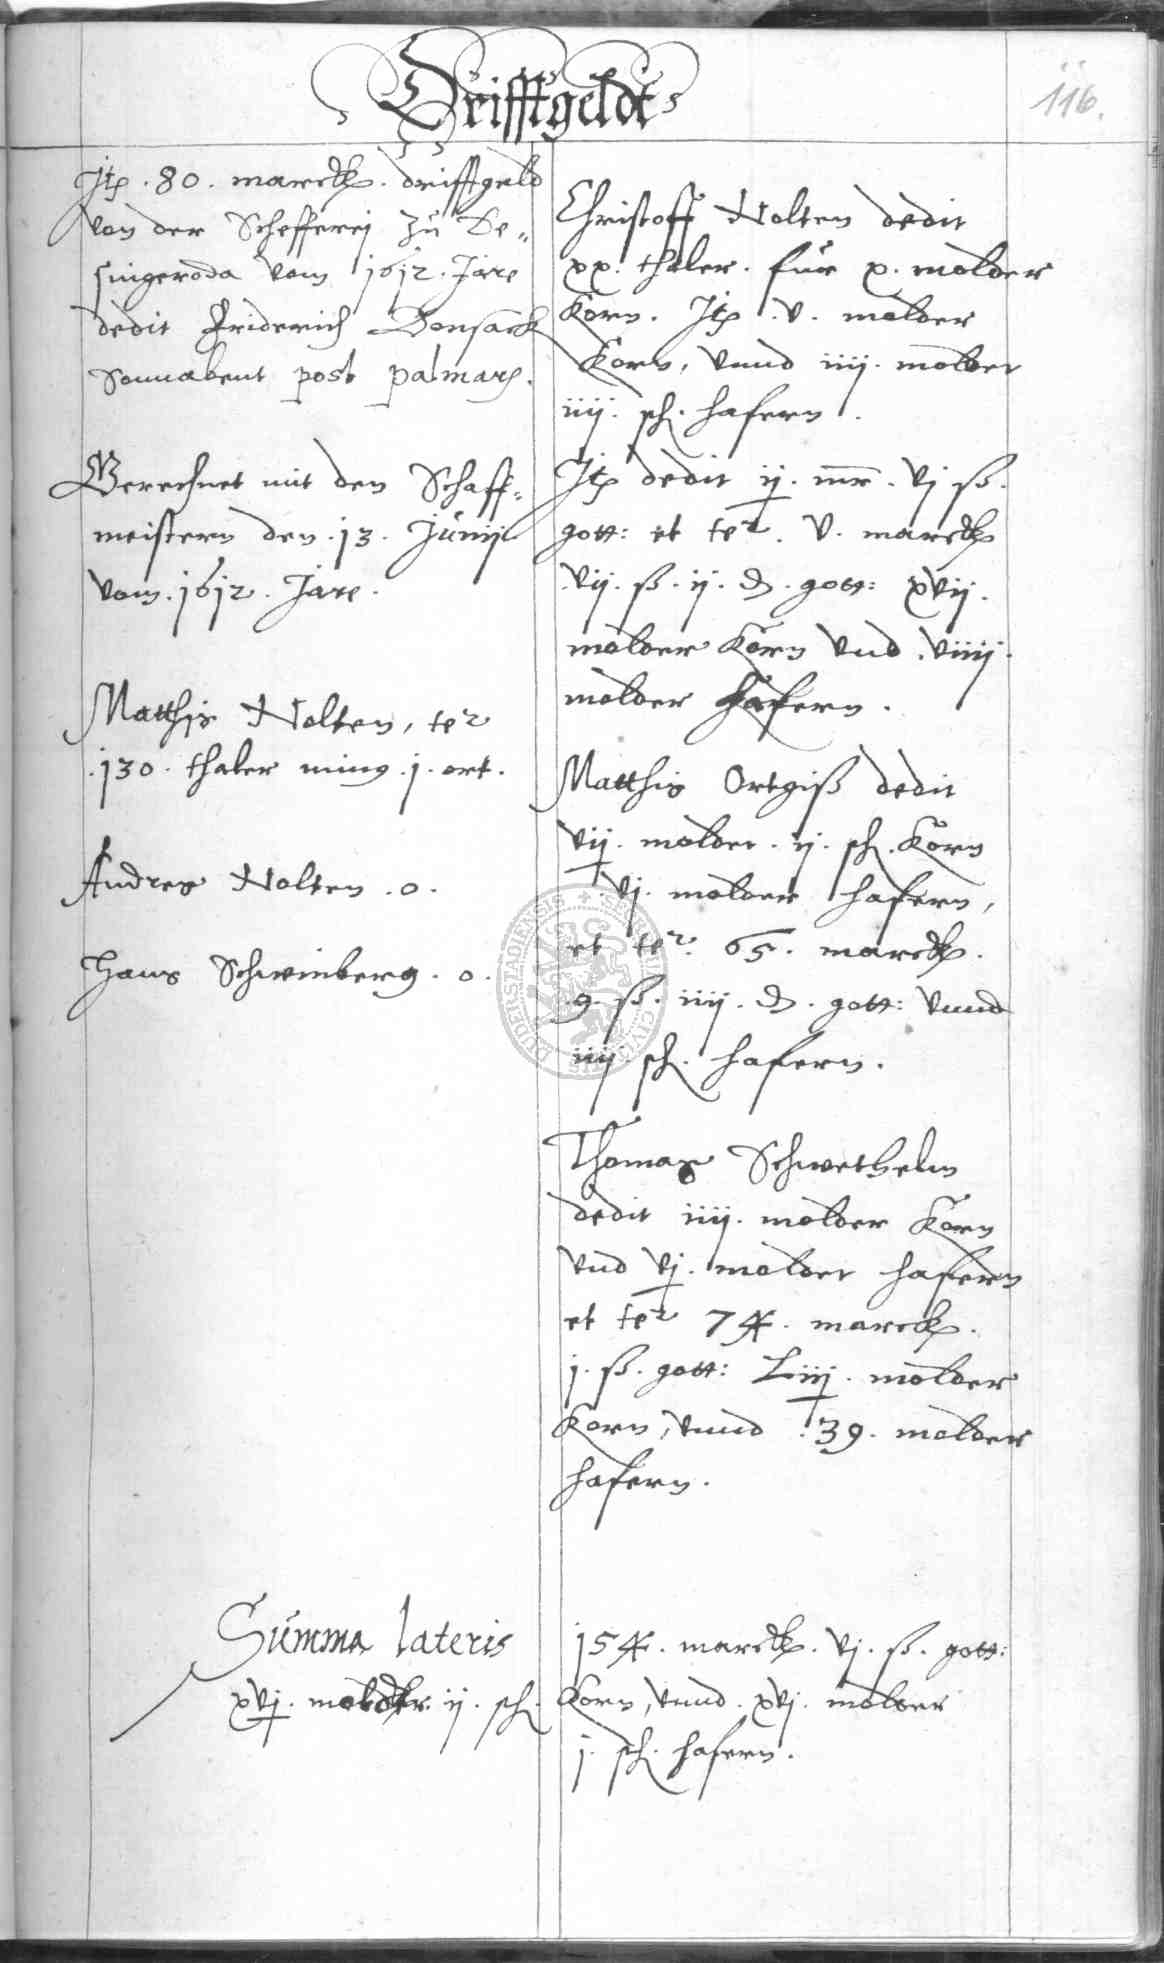 Drifftgeldt
116.
Jtp. 80. marck. drifftgeld
von der Schefferej zu De„
singeroda vom 1612. Jare
dedit Friderich Donsack
Sonnabent post palmarũ.
Gerechnet mit den Schaff„
meistern den. 13. Junij
vom. 1612. Jare.
Matthis Nolten, ter
.130. thaler ming .j. ort.
Andres Nolten .o.
Hans Schwinberg. o.
Christoff Nolten dedit
xx. thaler. für x. molder
Korn. Jtp .v. molder
Korn, vnnd iiij. molder
iiij. sch. hafern.
Jtp dedit ij. mr. vj ß.
gott: et ter. v. marck
vij. ß. ij. ₰. gott: xvij.
molder Korn vnd .viiij.
molder hafern.
Matthis Ortgiß dedit
vij. molder. ij. sch. Korn
vj. molder hafern,
et ter. 65. marck.
.9. ß. iiij. ₰. gott: vnnd
iiij. sch. hafern.
Thomas Schwethelm
dedit iiij. molder Korn
vnd vj. molder hafern
et ter 74. marck.
j. ß. gott: Liij. molder
Korn, vnnd .39. molder
hafern.
Summa lateris 154. marck. vj. ß. gott:
xvj. molder. ij. sch. Korn, vnnd. xvj. molder
j. sch. hafern.
SECRETUM CIVITATIS DUDERSTADIENSIS